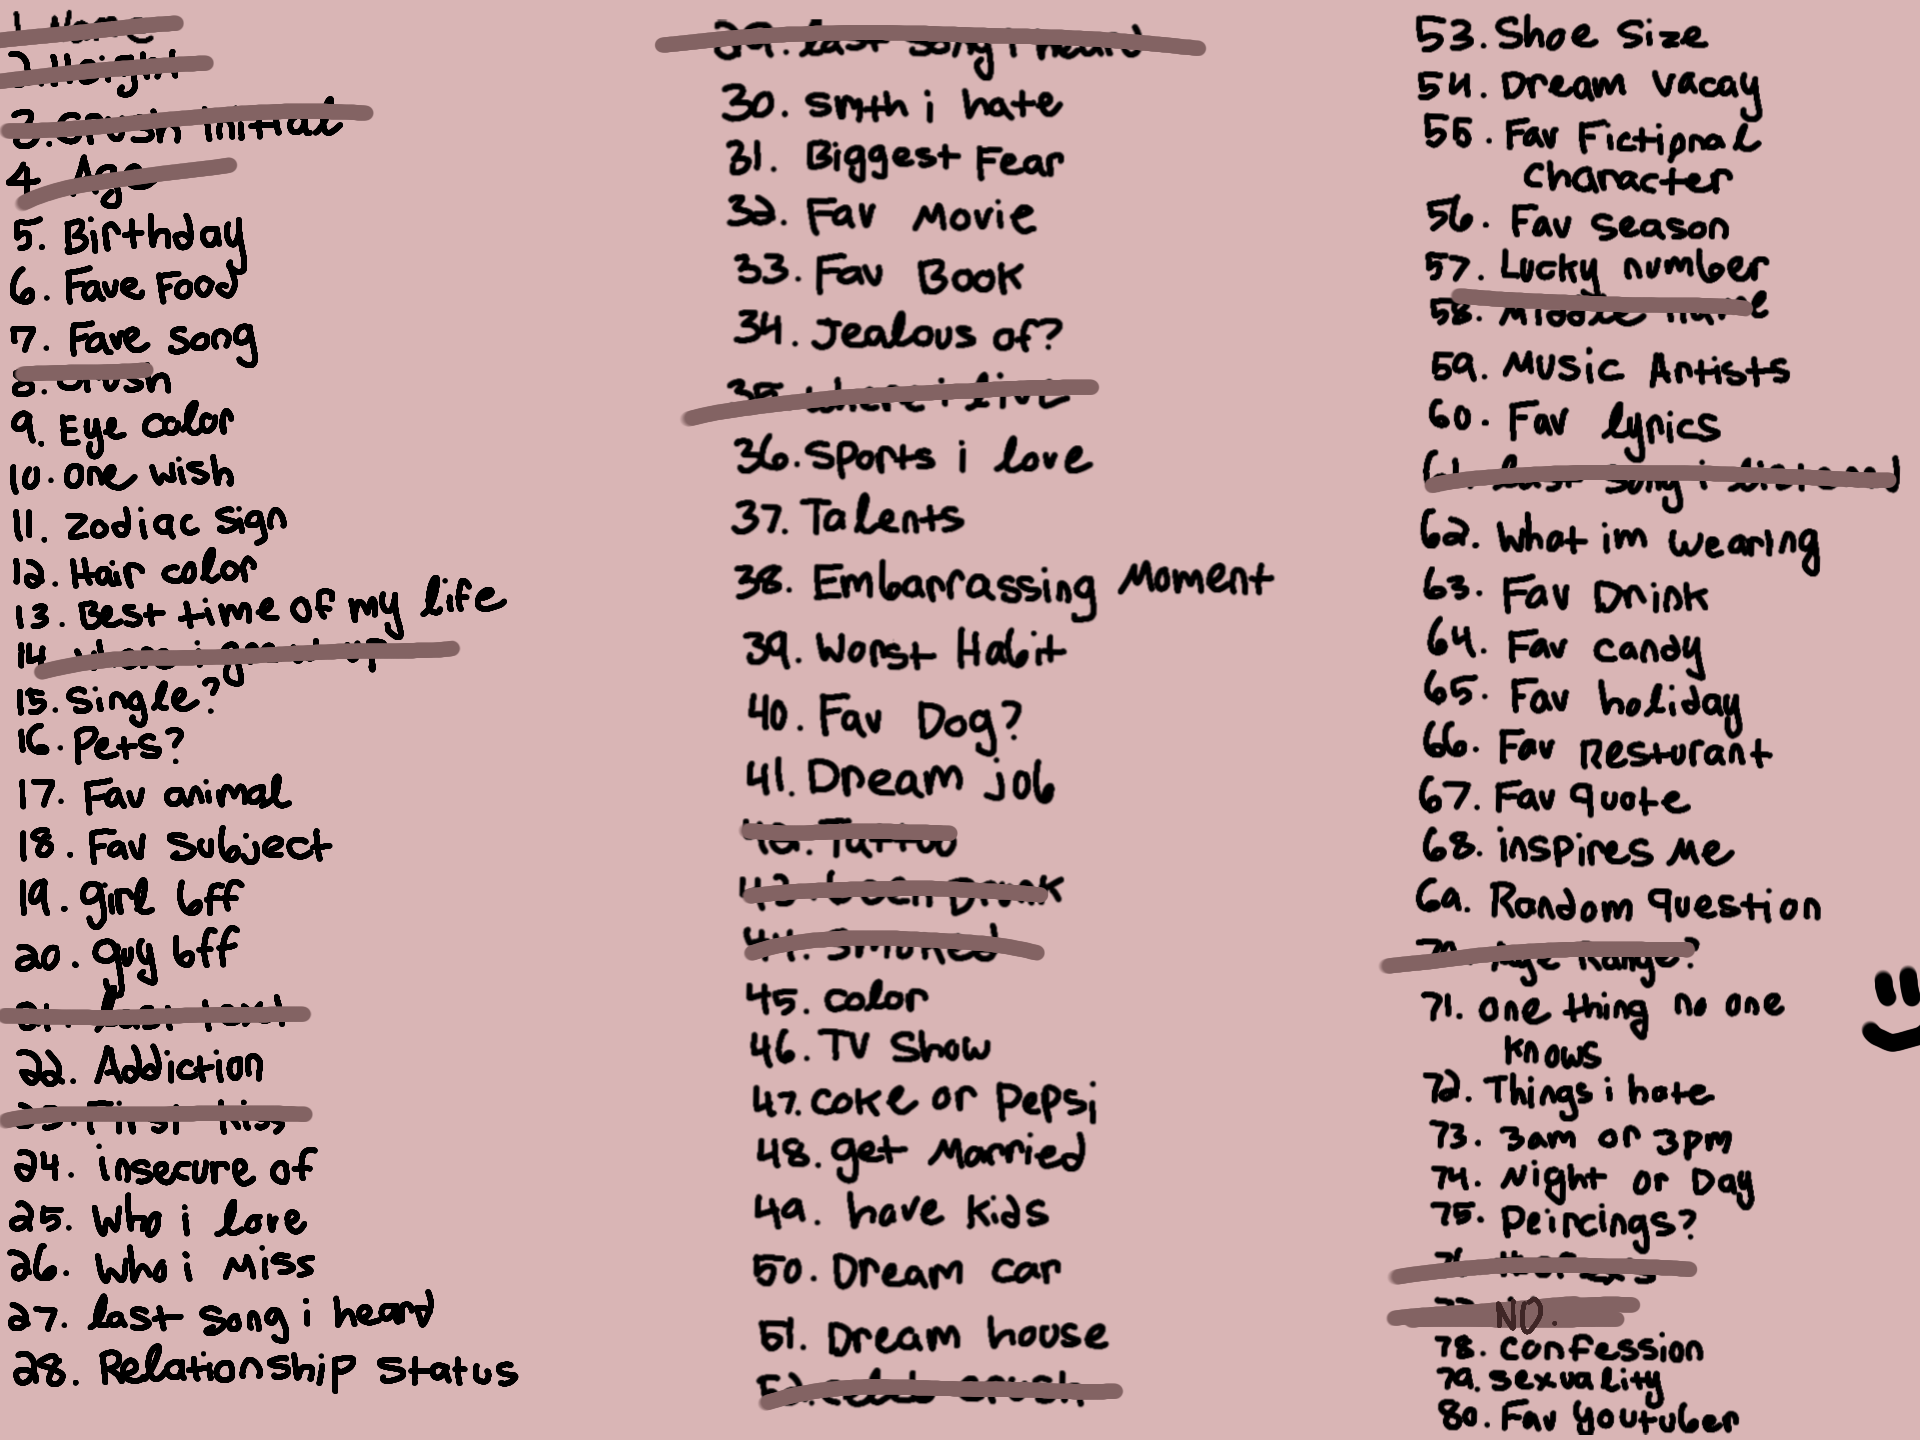 1. Name
2. Height
3. Crush initial
4. Age
5. Birthday
6. Fave Food
7. Fave song
8. Crush
9. Eye color
10. one wish
11. zodiac sign
12. Hair color
13. Best time of my life
14. where i grew up
15. single?
16. Pets?
17. Fav animal
18. Fav subject
19. girl bff
20. guy bff
21. last text
22. Addiction
23. First kiss
24. insecure of
25. who i love
26. who i miss
27. last song i heard
28. Relationship status
29. last song i heard
30. smth i hate
31. Biggest Fear
32. Fav Movie
33. Fav Book
34. Jealous of?
35. where i live
36. Sports i love
37. Talents
38. Embarrassing Moment
39. Worst Habit
40. Fav Dog?
41. Dream job
42. Tattoo
43. been Drunk
44. smoked
45. color
46. TV Show
47. coke or Pepsi
48. get Married
49. have kids
50. Dream car
51. Dream house
52. celeb crush
53. Shoe Size
54. Dream vacay
55. Fav Fictional
character
56. Fav season
57. Lucky number
58. Middle name
59. Music Artists
60. Fav lyrics
61. last song i listened
62. What im wearing
63. Fav Drink
64. Fav candy
65. Fav holiday
66. Fav Resturant
67. Fav quote
68. inspires Me
69. Random question
70. Age Range?
71. one thing no one
knows
72. Things i hate
73. 3am or 3pm
74. Night or Day
75. Peircings?
76.
77. NO.
78. confession
79. sexuality
80. Fav youtuber